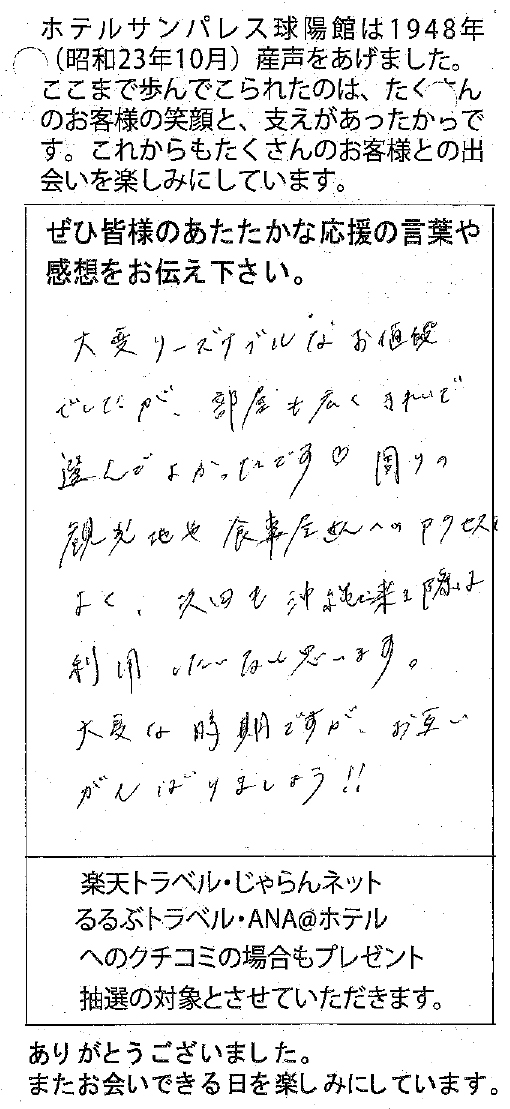 ホテルサンパレス球陽館は1948年
(昭和23年10月)産声をあげました。
ここまで歩んでこられたのは、たくさん
のお客様の笑顔と、支えがあったからで
す。これからもたくさんのお客様との出
会いを楽しみにしています。
ぜひ皆様のあたたかな応援の言葉や
感想をお伝え下さい。
大変リーズナブルなお値段
でしたが、部屋も広くきれいで
選んでよかったです♡ 周りの
観光地や食事屋さんへのアクセスも
よく、次回も沖縄に来る際は
利用したいなと思います。
大変な時期ですが、お互い
がんばりましょう!!
楽天トラベル・じゃらんネット
るるぶトラベル・ANA@ホテル
へのクチコミの場合もプレゼント
抽選の対象とさせていただきます。
ありがとうございました。
またお会いできる日を楽しみにしています。